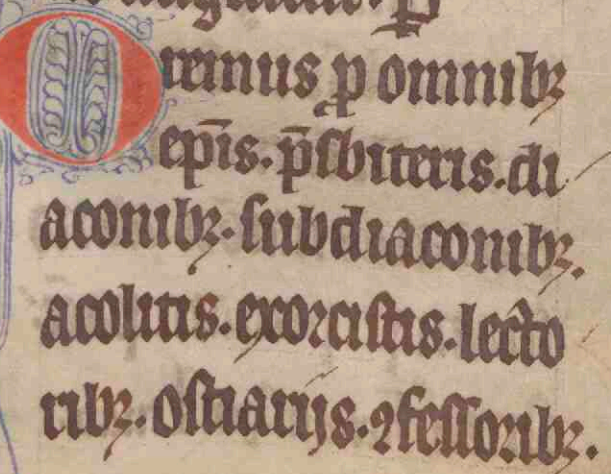 Oremus ꝓ omnibꝫ
ep̄is. p̄sbiteris. di
aconibꝫ. subdiaconibꝫ.
acolitis. exorcistis. lecto
ribꝫ. ostiarijs. ꝯfessoribꝫ.